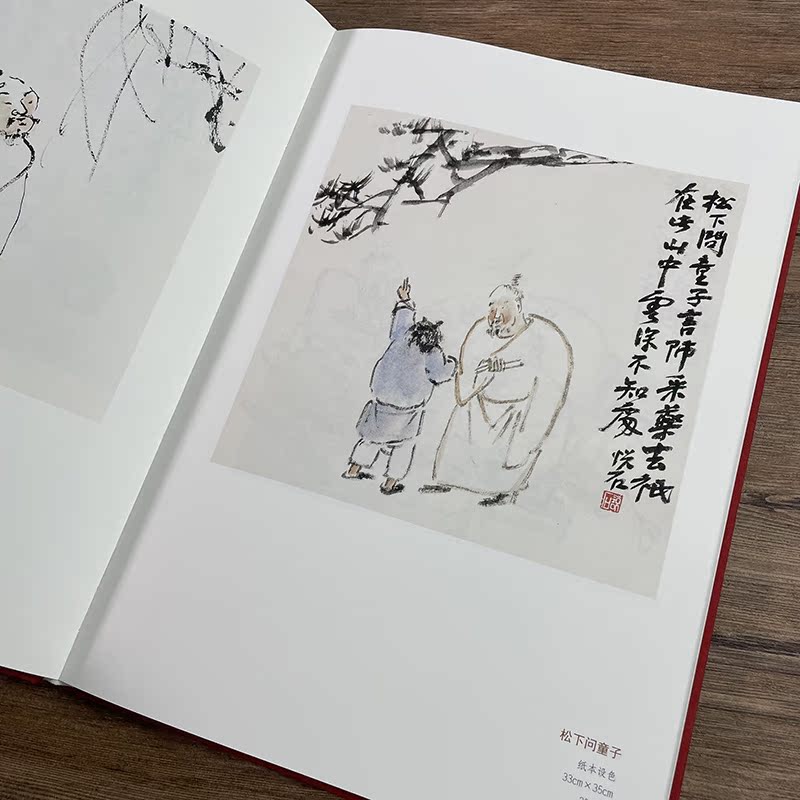 松下問童子言師采藥去祇
在此山中雲深不知處
悦石
松下问童子
纸本设色
33cm×35cm